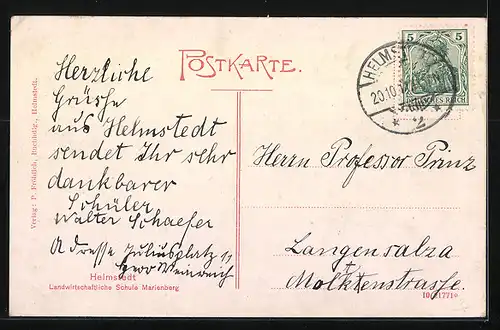 POSTKARTE.
Herzliche
Grüsse
aus Helmstedt
sendet Ihr sehr
dankbarer
Schüler
Walter Schaefer
Adresse Juliusplatz 11
Helmstedt
Landwirtschaftliche Schule Marienberg
Verlag: P. Fröhlich, Buchhdlg., Helmstedt.
5 5
DEUTSCHES REICH
HELMST
20.10.
* 2 *
Herrn Professor Prinz
Langensalza
Moltkenstrasse.